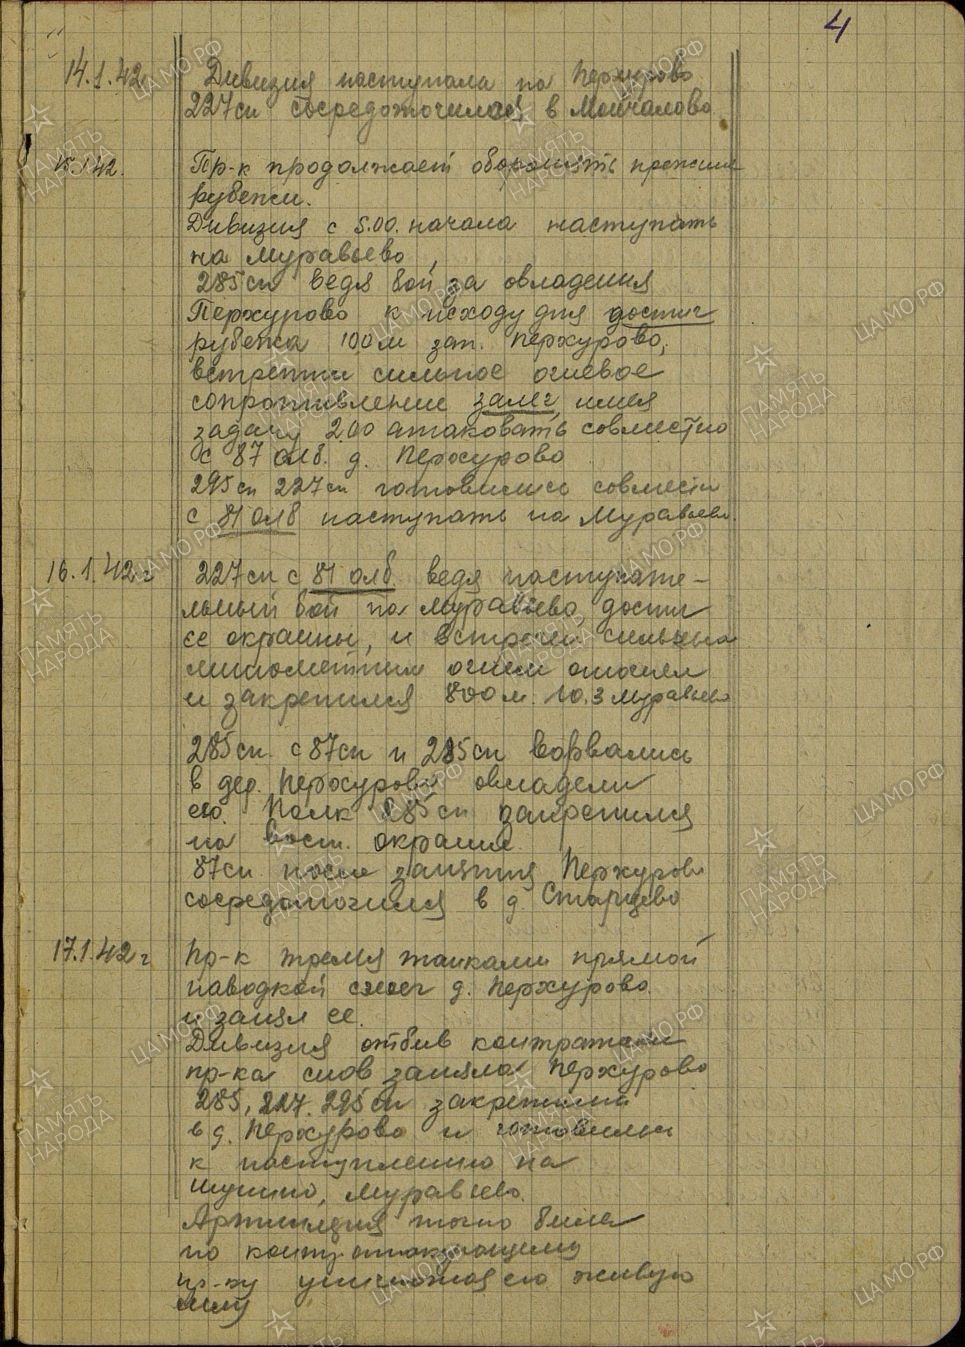 4
14.1.42г Дивизия наступала на Перхурово
227сп сосредоточился в Мончалово
15.1.42. Пр-к продолжает оборонять прежние
рубежи.
Дивизия с 5.00. начала наступать
на Муравьево,
285сп ведя бой за овладения
Перхурово к исходу дня достиг
рубежа 100м зап. Перхурово,
встретил сильное огневое
сопротивление залег, имея
задачу 2.00 атаковать совместно
с 87 олб. д. Перхурово
295сп 227сп готовились совместн
с 81 олб наступать на Муравьево.
16.1.42г 227сп с 81 олб. ведя наступате-
льный бой на Муравьево достиг
ее окраины, и встречен сильным
минометным огнем отошел
и закрепился 800м. Ю.З Муравьево
285сп с 87сп и 285сп ворвались
в дер. Перхурово овладели
ею. Полк 285сп закрепился
на вост. окраине.
87сп после занятия Перхурово
сосредоточился в д. Старцево
17.1.42г Пр-к тремя танками прямой
наводкой сжег д. Перхурово
и занял ее.
Дивизия отбив контратаки
пр-ка снов заняла Перхурово
285, 227. 295сп закрепились
в д. Перхурово и готовились
к наступлению на
Муравьево.
Артиллерия точно била
по контратакующему
пр-ку уничтожая его живую
силу
ЦАМО РФ
ПАМЯТЬ
НАРОДА